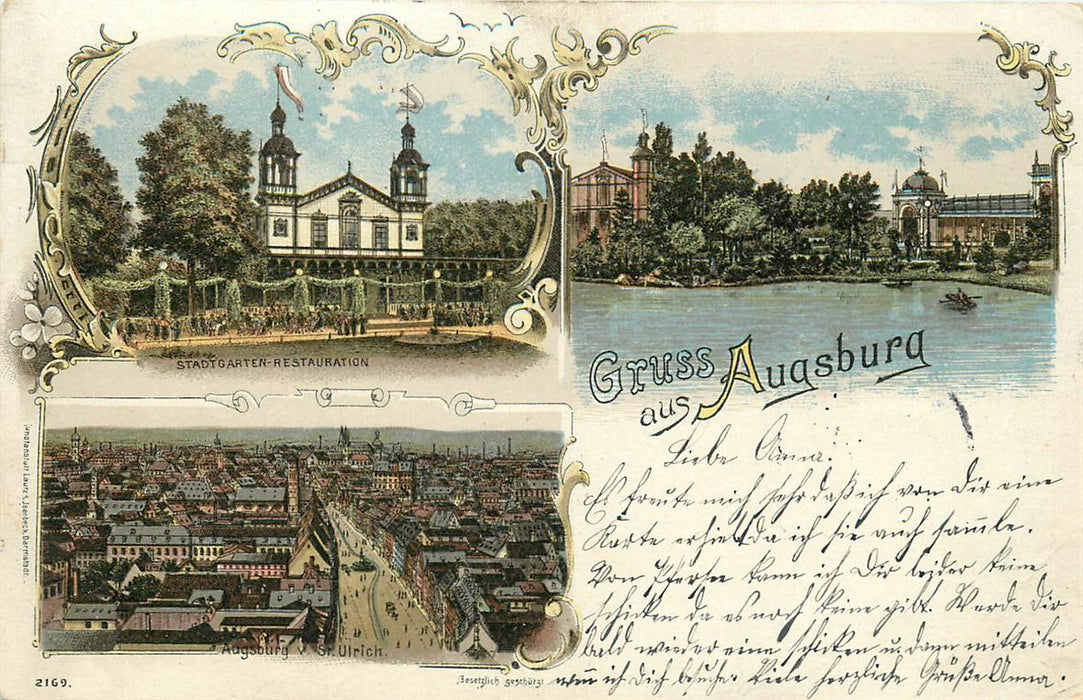 STADTGARTEN-RESTAURATION
Gruss
aus Augsburg
Liebe Anna.
Es freute mich sehr daß ich von Dir eine
Karte erhielt da ich sie auch samle.
Von Pfersee kann ich Dir leider keine
schicken da es noch keine gibt. Werde Dir
bald wieder eine schicken u. dann mitteilen
wen ich Dich besuche. Viele herzliche Grüße Anna.
Augsburg v. St. Ulrich.
Kunstanstalt Lautz & Isenbeck, Darmstadt.
2169.
Gesetzlich geschützt